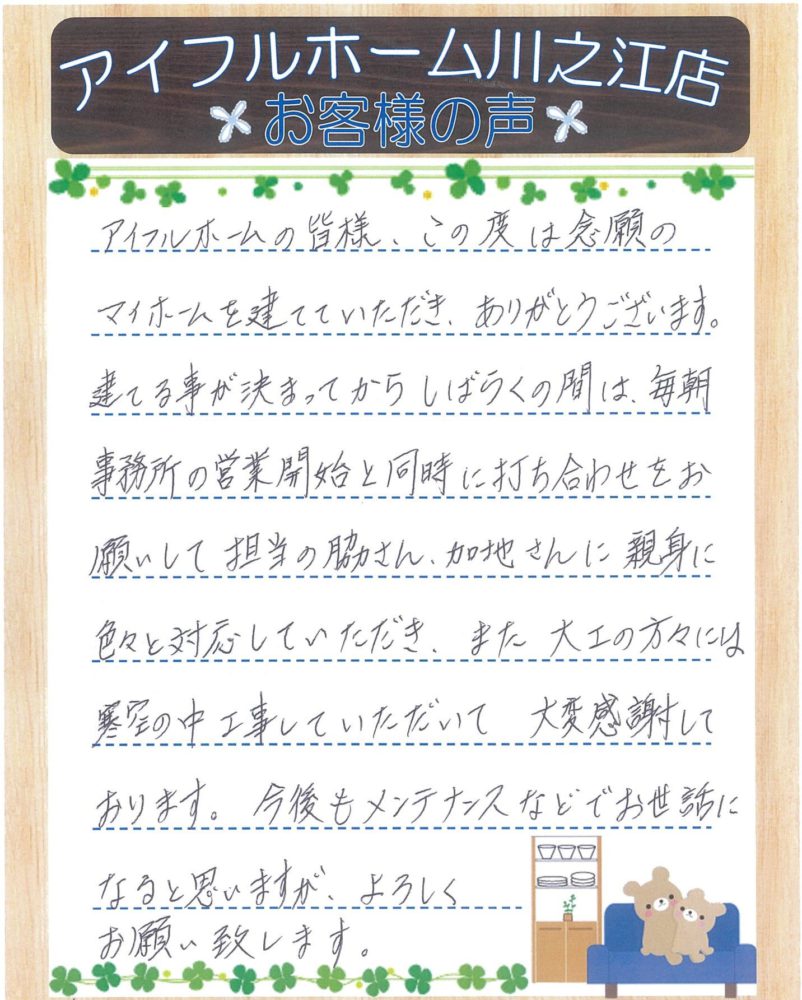 アイフルホーム川之江店
お客様の声
アイフルホームの皆様、この度は念願の
マイホームを建てていただき、ありがとうございます。
建てる事が決まってからしばらくの間は、毎朝
事務所の営業開始と同時に打ち合わせをお
願いして担当の脇さん、加地さんに親身に
色々と対応していただき、また大工の方々には
寒空の中工事していただいて 大変感謝して
おります。今後もメンテナンスなどでお世話に
なると思いますが、よろしく
お願い致します。